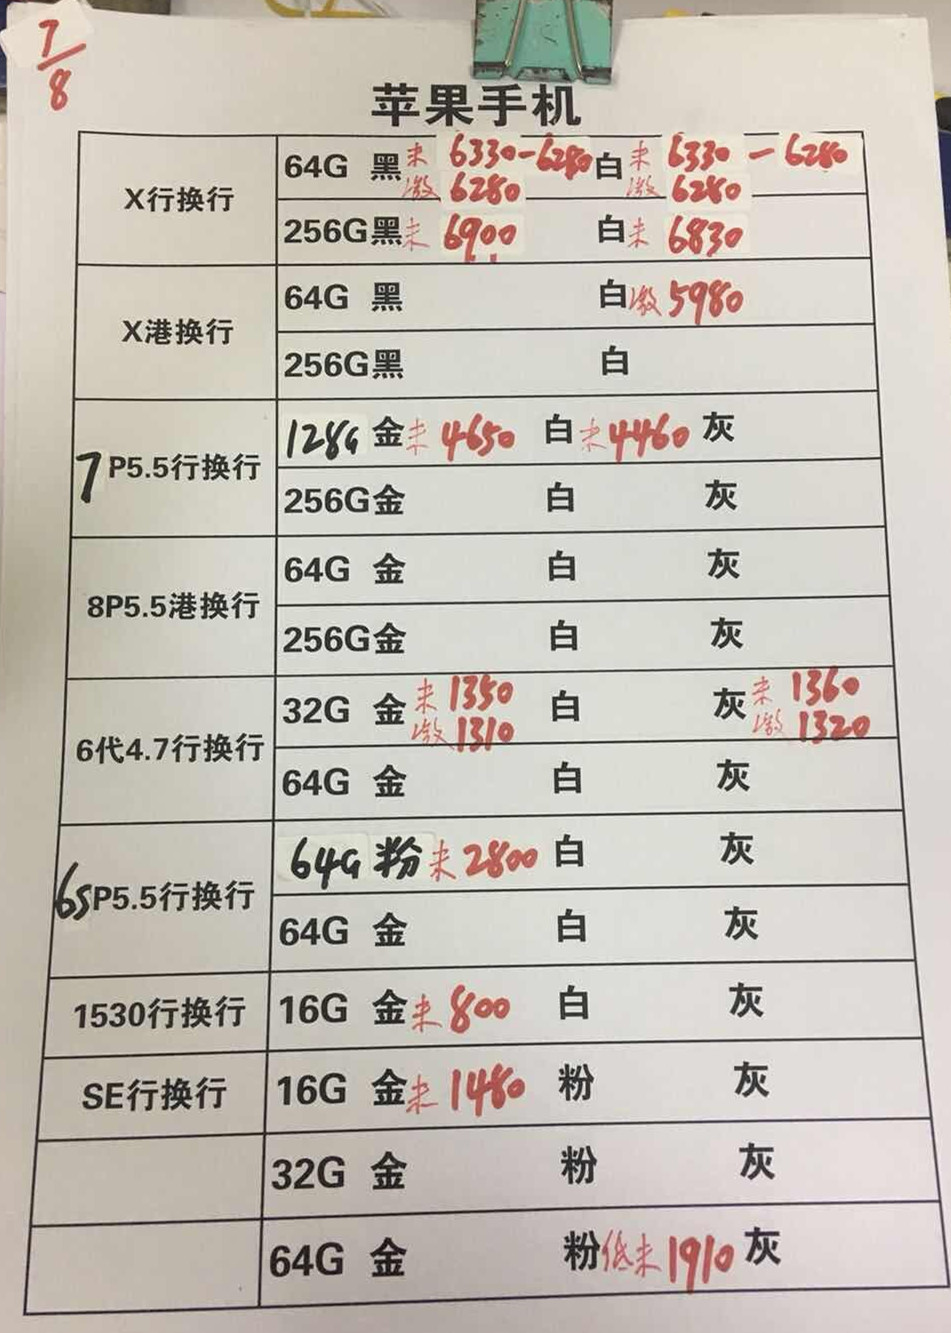 7/8
苹果手机
X行换行
64G 黑 未 6330-6280 白 未 6330-6280
激 6280 激 6280
256G 黑 未 6900 白 未 6830
X港换行
64G 黑 白 激 5980
256G 黑 白
7P5.5行换行
128G 金 未 4650 白 未 4460 灰
256G 金 白 灰
8P5.5港换行
64G 金 白 灰
256G 金 白 灰
6代4.7行换行
32G 金 未 1350 白 灰 未 1360
激 1310 激 1320
64G 金 白 灰
6SP5.5行换行
64G 粉 未 2800 白 灰
64G 金 白 灰
1530行换行
16G 金 未 800 白 灰
SE行换行
16G 金 未 1480 粉 灰
32G 金 粉 灰
64G 金 粉 低未 1910 灰